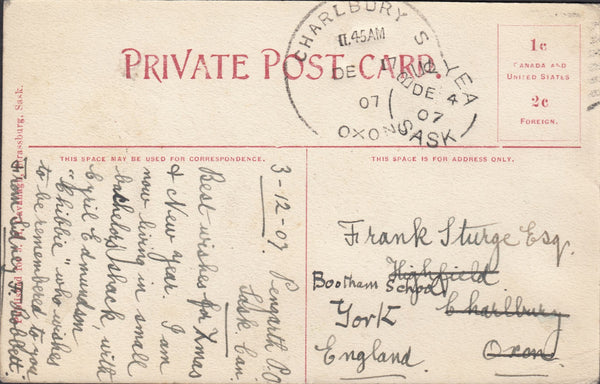 PRIVATE POST CARD.
1c
CANADA AND
UNITED STATES
2c
FOREIGN.
CHARLBURY
11.45AM
DE 17
07
OXON
DE 4
07
SASK
THIS SPACE MAY BE USED FOR CORRESPONDENCE.
THIS SPACE IS FOR ADDRESS ONLY.
3-12-07. Pengarth P.O.
Sask Can.
Best wishes for Xmas
& New Year. I am
now living in small
bachelors shack, with
Cyril Edmundson
"Chibbie" who wishes
to be remembered to you
from Sidney F.
Frank Sturge Esq.
Highfield
Bootham School
Charlbury
York
Oxon
England.
Strassburg, Sask.